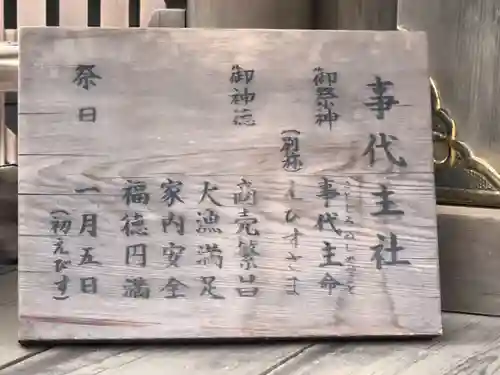 事代主社
御祭神
事代主命
ことしろぬしのみこと
(別称)
えびすさま
御神徳
商売繁昌
大漁満足
家内安全
福徳円満
祭日
一月五日
(初えびす)